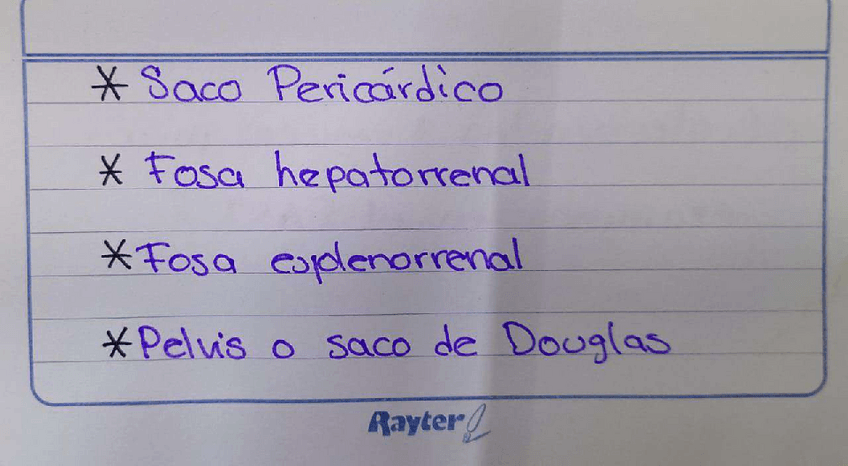 * Saco Pericárdico
* Fosa hepatorrenal
* Fosa esplenorrenal
* Pelvis o saco de Douglas
Rayter